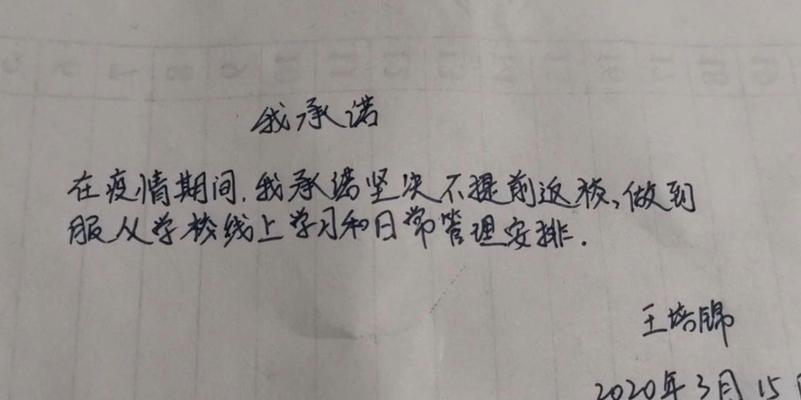 我承诺
在疫情期间,我承诺坚决不提前返校,做到
服从学校线上学习和日常管理安排.
王培锦
2020年3月15日